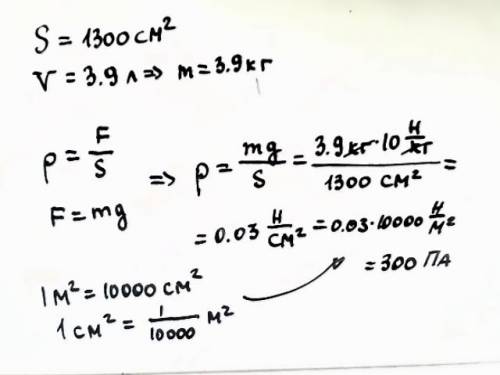 S = 1300 см²
V = 3.9 л => m = 3.9 кг
p = F/S => p = mg/S = 3.9 кг · 10 Н/кг / 1300 см² =
F = mg
= 0.03 Н/см² = 0.03 · 10000 Н/м²
= 300 Па
1 м² = 10000 см²
1 см² = 1/10000 м²